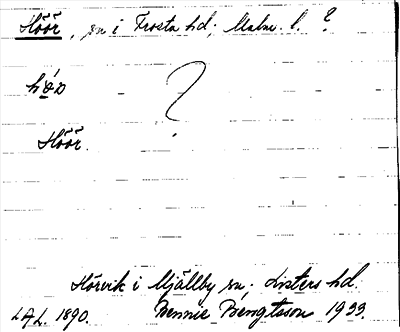 Höör, sn i Frosta hd; Malm. l. ?
?
Höör.
Hörvik i Mjällby sn. Listers hd.
LAL. 1890. Bennie Bengtsson 1933.